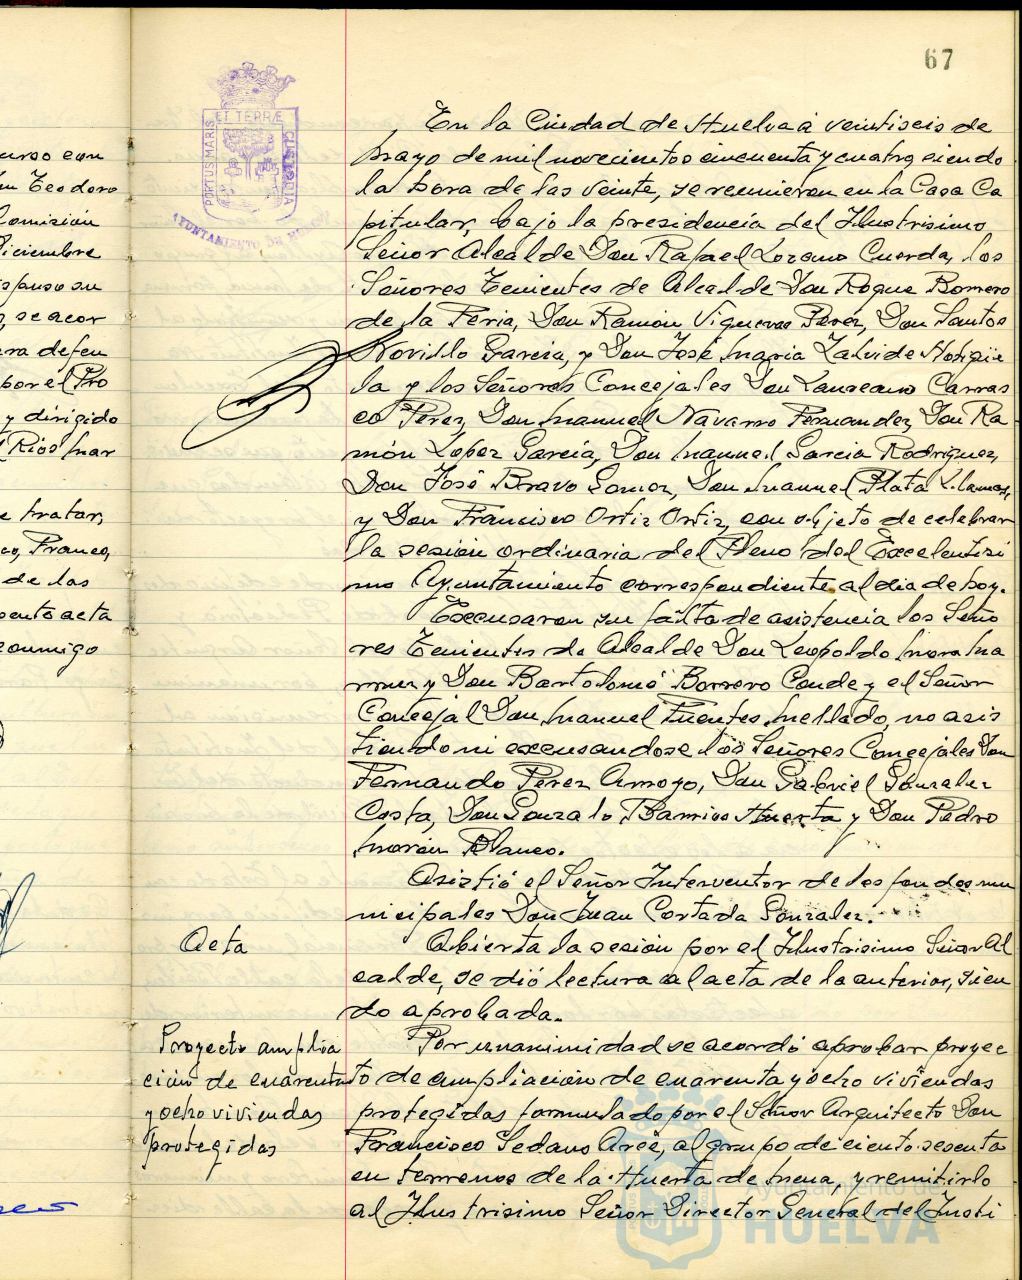 67
PORTUS MARIS ET TERRÆ CUSTODIA
AYUNTAMIENTO DE HUELVA
urso con
Teodoro
Comisión
Diciembre
spuso su
, se acor
ra defen
por el Pro
y dirigido
Ríos Mar
e tratar,
co, Franco,
de las
sente acta
conmigo
En la Ciudad de Huelva a veintiseis de
mayo de mil novecientos cincuenta y cuatro, siendo
la hora de las veinte, se reunieron en la Casa Ca
pitular, bajo la presidencia del Ilustrisimo
Señor Alcalde Don Rafael Lozano Cuerda, los
Señores Tenientes de Alcalde Don Roque Borrero
de la Feria, Don Ramón Vigueras Perez, Don Santos
Novillo Garcia, y Don José Maria Zalvide
la y los Señores Concejales Don Laureano Carras
co Perez, Don Manuel Navarro Fernandez, Don Ra
món Lopez Garcia, Don Manuel Garcia Rodriguez,
Don José Bravo Gomez, Don Manuel Plata Llamas,
y Don Francisco Ortiz Ortiz, con objeto de celebrar
la sesión ordinaria del Pleno del Excelentisi
mo Ayuntamiento correspondiente al dia de hoy.
Excusaron su falta de asistencia los Seño
res Tenientes de Alcalde Don Leopoldo Mora Ma
y Don Bartolomé Borrero Conde y el Señor
Concejal Don Manuel Fuentes Mellado, no asis
tiendo ni excusandose los Señores Concejales Don
Fernando Perez Arroyo, Don Gabriel Gonzalez
Costa, Don Gonzalo Barrios Huerta y Don Pedro
Morón Blanco.
Asistió el Señor Interventor de los fondos mu
nicipales Don Juan Cortada Gonzalez.
Acta
Abierta la sesión por el Ilustrisimo Señor Al
calde, se dió lectura al acta de la anterior, sien
do aprobada.
Proyecto amplia
ción de cuarenta
y ocho viviendas
protegidas
Por unanimidad se acordó aprobar proyec
to de ampliación de cuarenta y ocho viviendas
protegidas formulado por el Señor Arquitecto Don
Francisco Sedano Arce, al grupo de ciento sesenta
en terrenos de la Huerta de Mena, y remitirlo
al Ilustrisimo Señor Director General del Insti
Ayuntamiento de
HUELVA